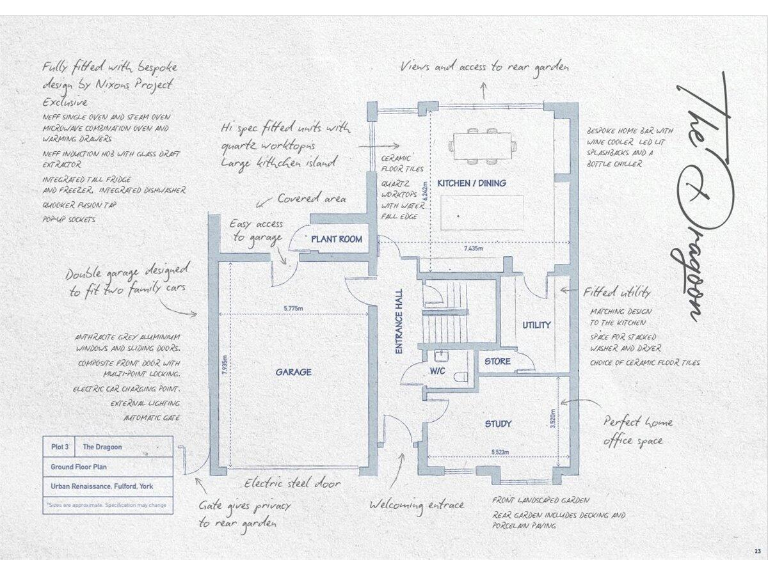 Fully fitted with bespoke
design by Nixons Project
Exclusive
NEFF SINGLE OVEN AND STEAM OVEN
MICROWAVE COMBINATION OVEN AND
WARMING DRAWERS
NEFF INDUCTION HOB WITH GLASS DRAFT
EXTRACTOR
INTEGRATED TALL FRIDGE
AND FREEZER, INTEGRATED DISHWASHER
QUOOKER FUSION TAP
POP-UP SOCKETS
Hi spec fitted units with
quartz worktopns
Large kithchen island
Views and access to rear garden
The Dragoon
CERAMIC
FLOOR TILES
QUARTZ
WORKTOPS
WITH WATER
FALL EDGE
KITCHEN / DINING
6.242m
7.435m
BESPOKE HOME BAR WITH
WINE COOLER, LED LIT
SPLASHBACKS AND A
BOTTLE CHILLER
Covered area
Easy access
to garage
PLANT ROOM
Double garage designed
to fit two family cars
5.775m
7.935m
GARAGE
ENTRANCE HALL
UTILITY
STORE
W/C
Fitted utility
MATCHING DESIGN
TO THE KITCHEN
SPACE FOR STACKED
WASHER AND DRYER
CHOICE OF CERAMIC FLOOR TILES
ANTHRACITE GREY ALUMINIUM
WINDOWS AND SLIDING DOORS.
COMPOSITE FRONT DOOR WITH
MULTI-POINT LOCKING.
ELECTRIC CAR CHARGING POINT.
EXTERNAL LIGHTING
AUTOMATIC GATE
STUDY
3.520m
5.523m
Perfect home
office space
Plot 3 The Dragoon
Ground Floor Plan
Urban Renaissance, Fulford, York
*Sizes are approximate. Specification may change
Electric steel door
Gate gives privacy
to rear garden
Welcoming entrace
FRONT LANDSCAPED GARDEN
REAR GARDEN INCLUDES DECKING AND
PORCELAIN PAVING
23